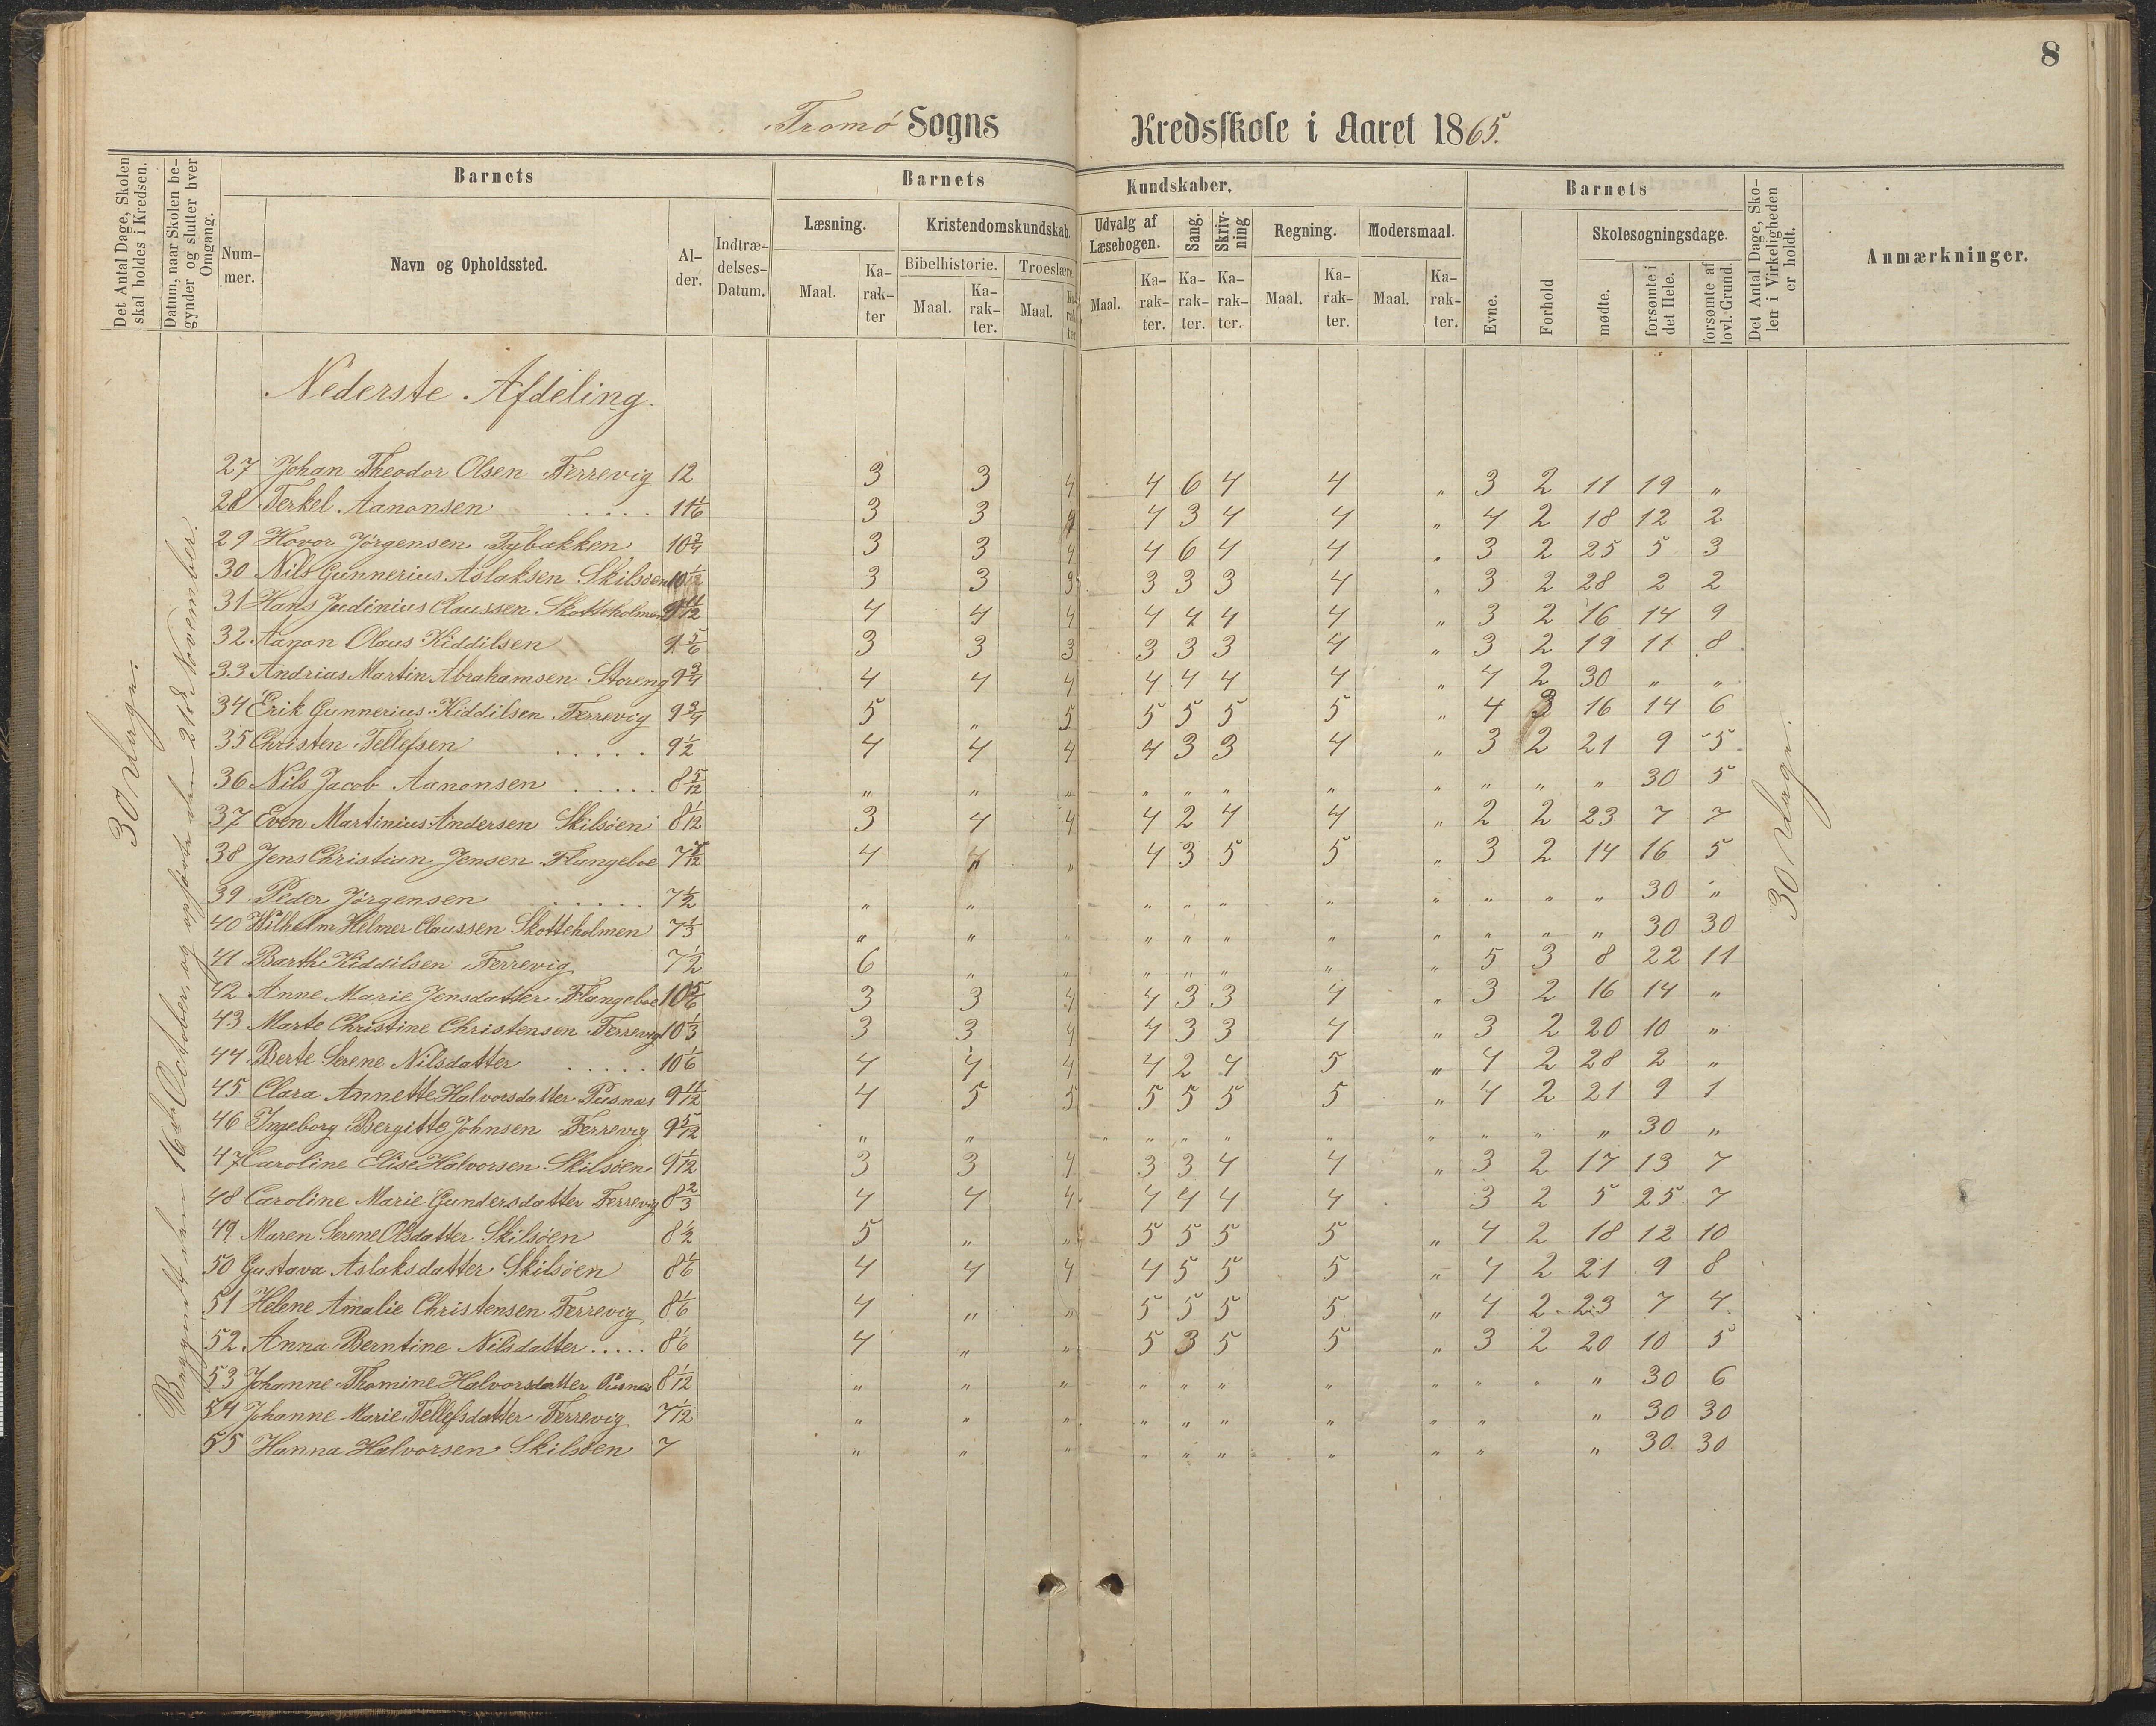 8
Tromö Sogns Kredsskole i Aaret 1865.
Det Antal Dage, Skolen skal holdes i Kredsen.
Datum, naar Skolen begynder og slutter hver Omgang.
Barnets
Nummer.
Navn og Opholdssted.
Alder.
Indtrædelses-Datum.
Barnets Kundskaber.
Læsning.
Maal. Karakter
Kristendomskundskab.
Bibelhistorie. Troeslære.
Maal. Karakter. Maal. Karakter
Udvalg af Læsebogen.
Maal. Karakter.
Sang. Karakter.
Skrivning Karakter.
Regning. Maal. Karakter.
Modersmaal. Maal. Karakter.
Barnets
Evne.
Forhold
Skolesøgningsdage.
mødte.
forsømte i det Hele.
forsømte af lovl. Grund.
Det Antal Dage, Skolen i Virkeligheden er holdt.
Anmærkninger.
30 Dage.
Begyndt den 16de October, og ophørte den 21de November.
Nederste Afdeling.
27 Johan Theodor Olsen Færrevig 12 3 3 4 4 6 4 4 „ 3 2 11 19 „
28 Terkel Aanonsen ..... 11 1/6 3 3 4 4 3 4 4 „ 4 2 18 12 2
29 Hovor Jörgensen Tybakken 10 3/4 3 3 4 4 6 4 4 „ 3 2 25 5 3
30 Nils Gunnerius Aslaksen Skilsöen 10 1/12 3 3 3 3 3 3 4 „ 3 2 28 2 2
31 Hans Judinius Claussen Skotteholmen 9 11/12 4 4 4 4 4 4 4 „ 3 2 16 14 9
32 Aanon Olaus Kiddilsen 9 5/6 3 3 3 3 3 3 4 „ 3 2 19 11 8
33 Andrias Martin Abrahamsen Storeng 9 3/4 4 4 4 4 4 4 4 „ 4 2 30 „ „
34 Erik Gunnerius Kiddilsen Færrevig 9 3/4 5 „ 5 5 5 5 5 „ 4 3 16 14 6
35 Christen Tellefsen ..... 9 1/2 4 4 4 4 3 3 4 „ 3 2 21 9 5
36 Nils Jacob Aanonsen ..... 8 5/12 „ „ „ „ „ „ „ „ „ „ „ 30 5
37 Even Martinius Andersen Skilsöen 8 1/12 3 4 4 4 2 4 4 „ 2 2 23 7 7
38 Jens Christian Jensen Flangeboe 7 7/12 4 „ „ 4 3 5 5 „ 3 2 14 16 5
39 Peder Jörgensen ...... 7 1/2 „ „ „ „ „ „ „ „ „ „ 30 „
40 Wilhelm Helmer Claussen Skotteholmen 7 1/3 „ „ „ „ „ „ „ „ „ „ „ 30 30
41 Barth Kiddilsen Færrevig 7 1/2 6 „ „ „ „ „ „ „ 5 3 8 22 11
42 Anne Marie Jensdatter Flangeboe 10 5/6 3 3 4 4 3 3 4 „ 3 2 16 14 „
43 Marte Christine Christensen Færrevig 10 1/3 3 3 4 4 3 3 4 „ 3 2 20 10 „
44 Berte Serene Nilsdatter ..... 10 1/6 4 4 4 4 2 4 5 „ 4 2 28 2 „
45 Clara Annette Halvorsdatter Pusnæs 9 11/12 4 5 5 5 5 5 5 „ 4 2 21 9 1
46 Ingeborg Bergitte Johnsen Færrevig 9 5/12 „ „ „ „ „ „ „ „ „ „ „ 30 „
47 Caroline Elise Halvorsen Skilsöen 9 1/12 3 3 4 3 3 4 4 „ 3 2 17 13 7
48 Caroline Marie Gundersdatter Færrevig 8 2/3 4 4 4 4 4 4 4 3 2 5 25 7
49 Maren Serene Olsdatter Skilsöen 8 1/2 5 „ „ 5 5 5 5 „ 4 2 18 12 10
50 Gustava Aslaksdatter Skilsöen 8 1/6 4 4 4 4 5 5 5 „ 4 2 21 9 8
51 Helene Amalie Christensen Færrevig 8 1/6 4 „ „ 5 5 5 5 „ 4 2 23 7 4
52 Anna Berntine Nilsdatter ..... 8 1/6 4 „ „ 5 3 5 5 „ 3 2 20 10 5
53 Johanne Thomine Halvorsdatter Pusnæs 8 1/12 „ „ „ „ „ „ „ „ „ „ „ 30 6
54 Johanne Marie Tellefsdatter Færrevig 7 1/12 „ „ „ „ „ „ „ „ „ „ 30 30
55 Hanna Halvorsen Skilsöen 7 „ „ „ „ „ „ „ „ „ „ 30 30
30 Dage.